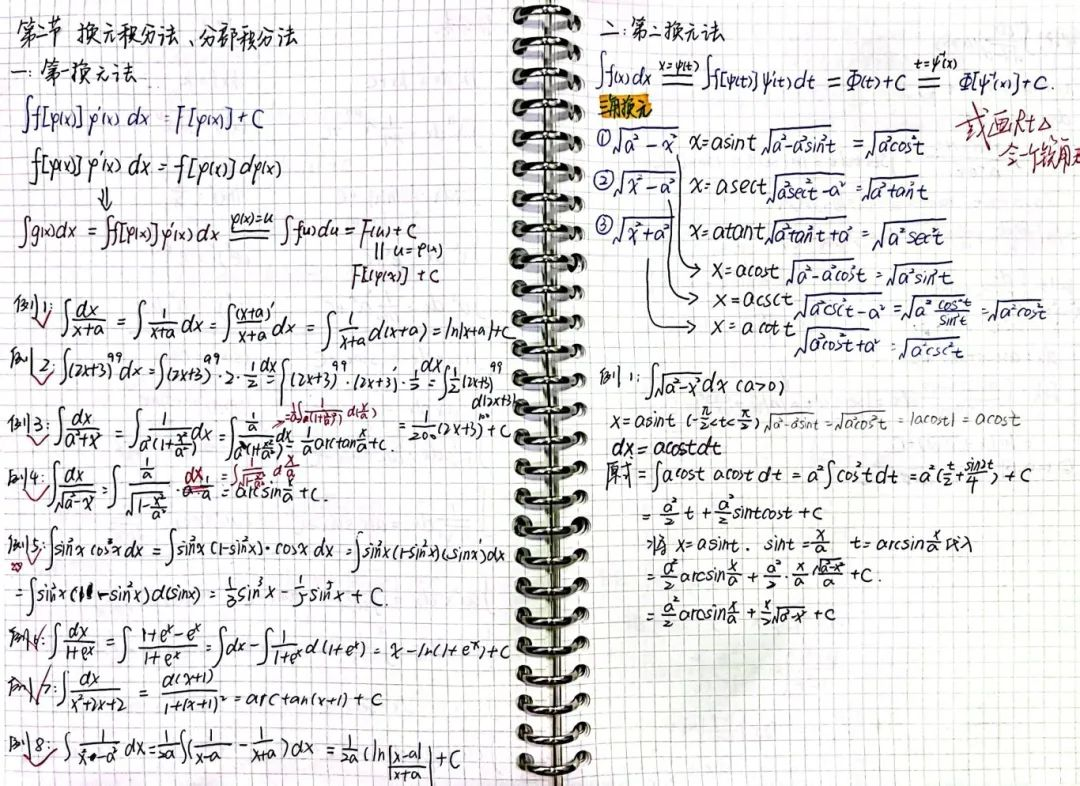 第二节 换元积分法、分部积分法
一:第一换元法
∫f[φ(x)]φ'(x)dx = F[φ(x)]+C
f[φ(x)]φ'(x)dx = f[φ(x)]dφ(x)
⇓
∫g(x)dx = ∫f[φ(x)]φ'(x)dx \xlongequal{φ(x)=u} ∫f(u)du = F(u)+C
|| u=φ(x)
F[(φ(x)]+C
例1: ∫dx/(x+a) = ∫1/(x+a) dx = ∫(x+a)'/(x+a) dx = ∫1/(x+a) d(x+a) = ln|x+a|+C
例2: ∫(2x+3)^99 dx = ∫(2x+3)^99·2·1/2 dx = ∫(2x+3)^99·(2x+3)'·1/2 dx = ∫1/2(2x+3)^99 d(2x+3)
= 1/200 (2x+3)^100 + C
例3: ∫dx/(a²+x²) = ∫1/(a²(1+x²/a²)) dx = ∫(1/a)/(a(1+x²/a²)) dx = 1/a arctan x/a + C.
例4: ∫dx/√(a²-x²) = ∫(1/a)/√(1-x²/a²) · = arcsin x/a + C.
例5: ∫sin²x cos³x dx = ∫sin²x(1-sin²x)·cosx dx = ∫sin²x(1-sin²x)(sinx)'dx
= ∫sin²x(1-sin²x)d(sinx) = 1/3 sin³x - 1/5 sin⁵x + C.
例6: ∫dx/(1+e^x) = ∫(1+e^x-e^x)/(1+e^x) = ∫dx - ∫1/(1+e^x) d(1+e^x) = x-ln(1+e^x)+C
例7: ∫dx/(x²+2x+2) = d(x+1)/(1+(x+1)²) = arctan(x+1)+C
例8: ∫1/(x²-a²) dx = 1/2a ∫(1/(x-a) - 1/(x+a))dx = 1/2a (ln|x-a|/|x+a| + C
二:第二换元法
∫f(x)dx \xlongequal{x=ψ(t)} ∫f[ψ(t)]ψ'(t)dt = Φ(t)+C \xlongequal{t=ψ⁻¹(x)} Φ[ψ⁻¹(x)]+C.
三角换元
或画Rt△
令一个锐角为
① √(a²-x²) x=asint √(a²-a²sin²t) = √(a²cos²t)
② √(x²-a²) x=asect √(a²sec²t-a²) = √(a²tan²t)
③ √(x²+a²) x=atant √(a²tan²t+a²) = √(a²sec²t)
→ x=acost √(a²-a²cos²t) = √(a²sin²t)
→ x=acsct √(a²csc²t-a²) = √(a² cos²t/sin²t) = √(a²cot²t)
→ x=acott √(a²cot²t+a²) = √(a²csc²t)
例1: ∫√(a²-x²)dx (a>0)
x=asint (-π/2<t<π/2) √(a²-a²sin²t) = √(a²cos²t) = |acost| = acost
dx=acostdt
原式=∫acost acost dt = a²∫cos²t dt = a²(t/2+sin2t/4)+C
= a²/2 t + a²/2 sintcost + C
将 x=asint. sint=x/a t=arcsin x/a 代入
= a²/2 arcsin x/a + a²/2 · x/a √(a²-x²)/a + C.
= a²/2 arcsin x/a + x/2 √(a²-x²) + C